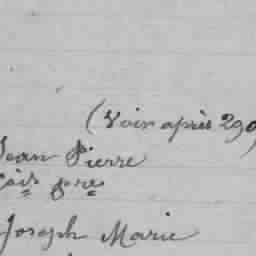 (Voir après 290)
Jean Pierre
çois p^re
Joseph Marie